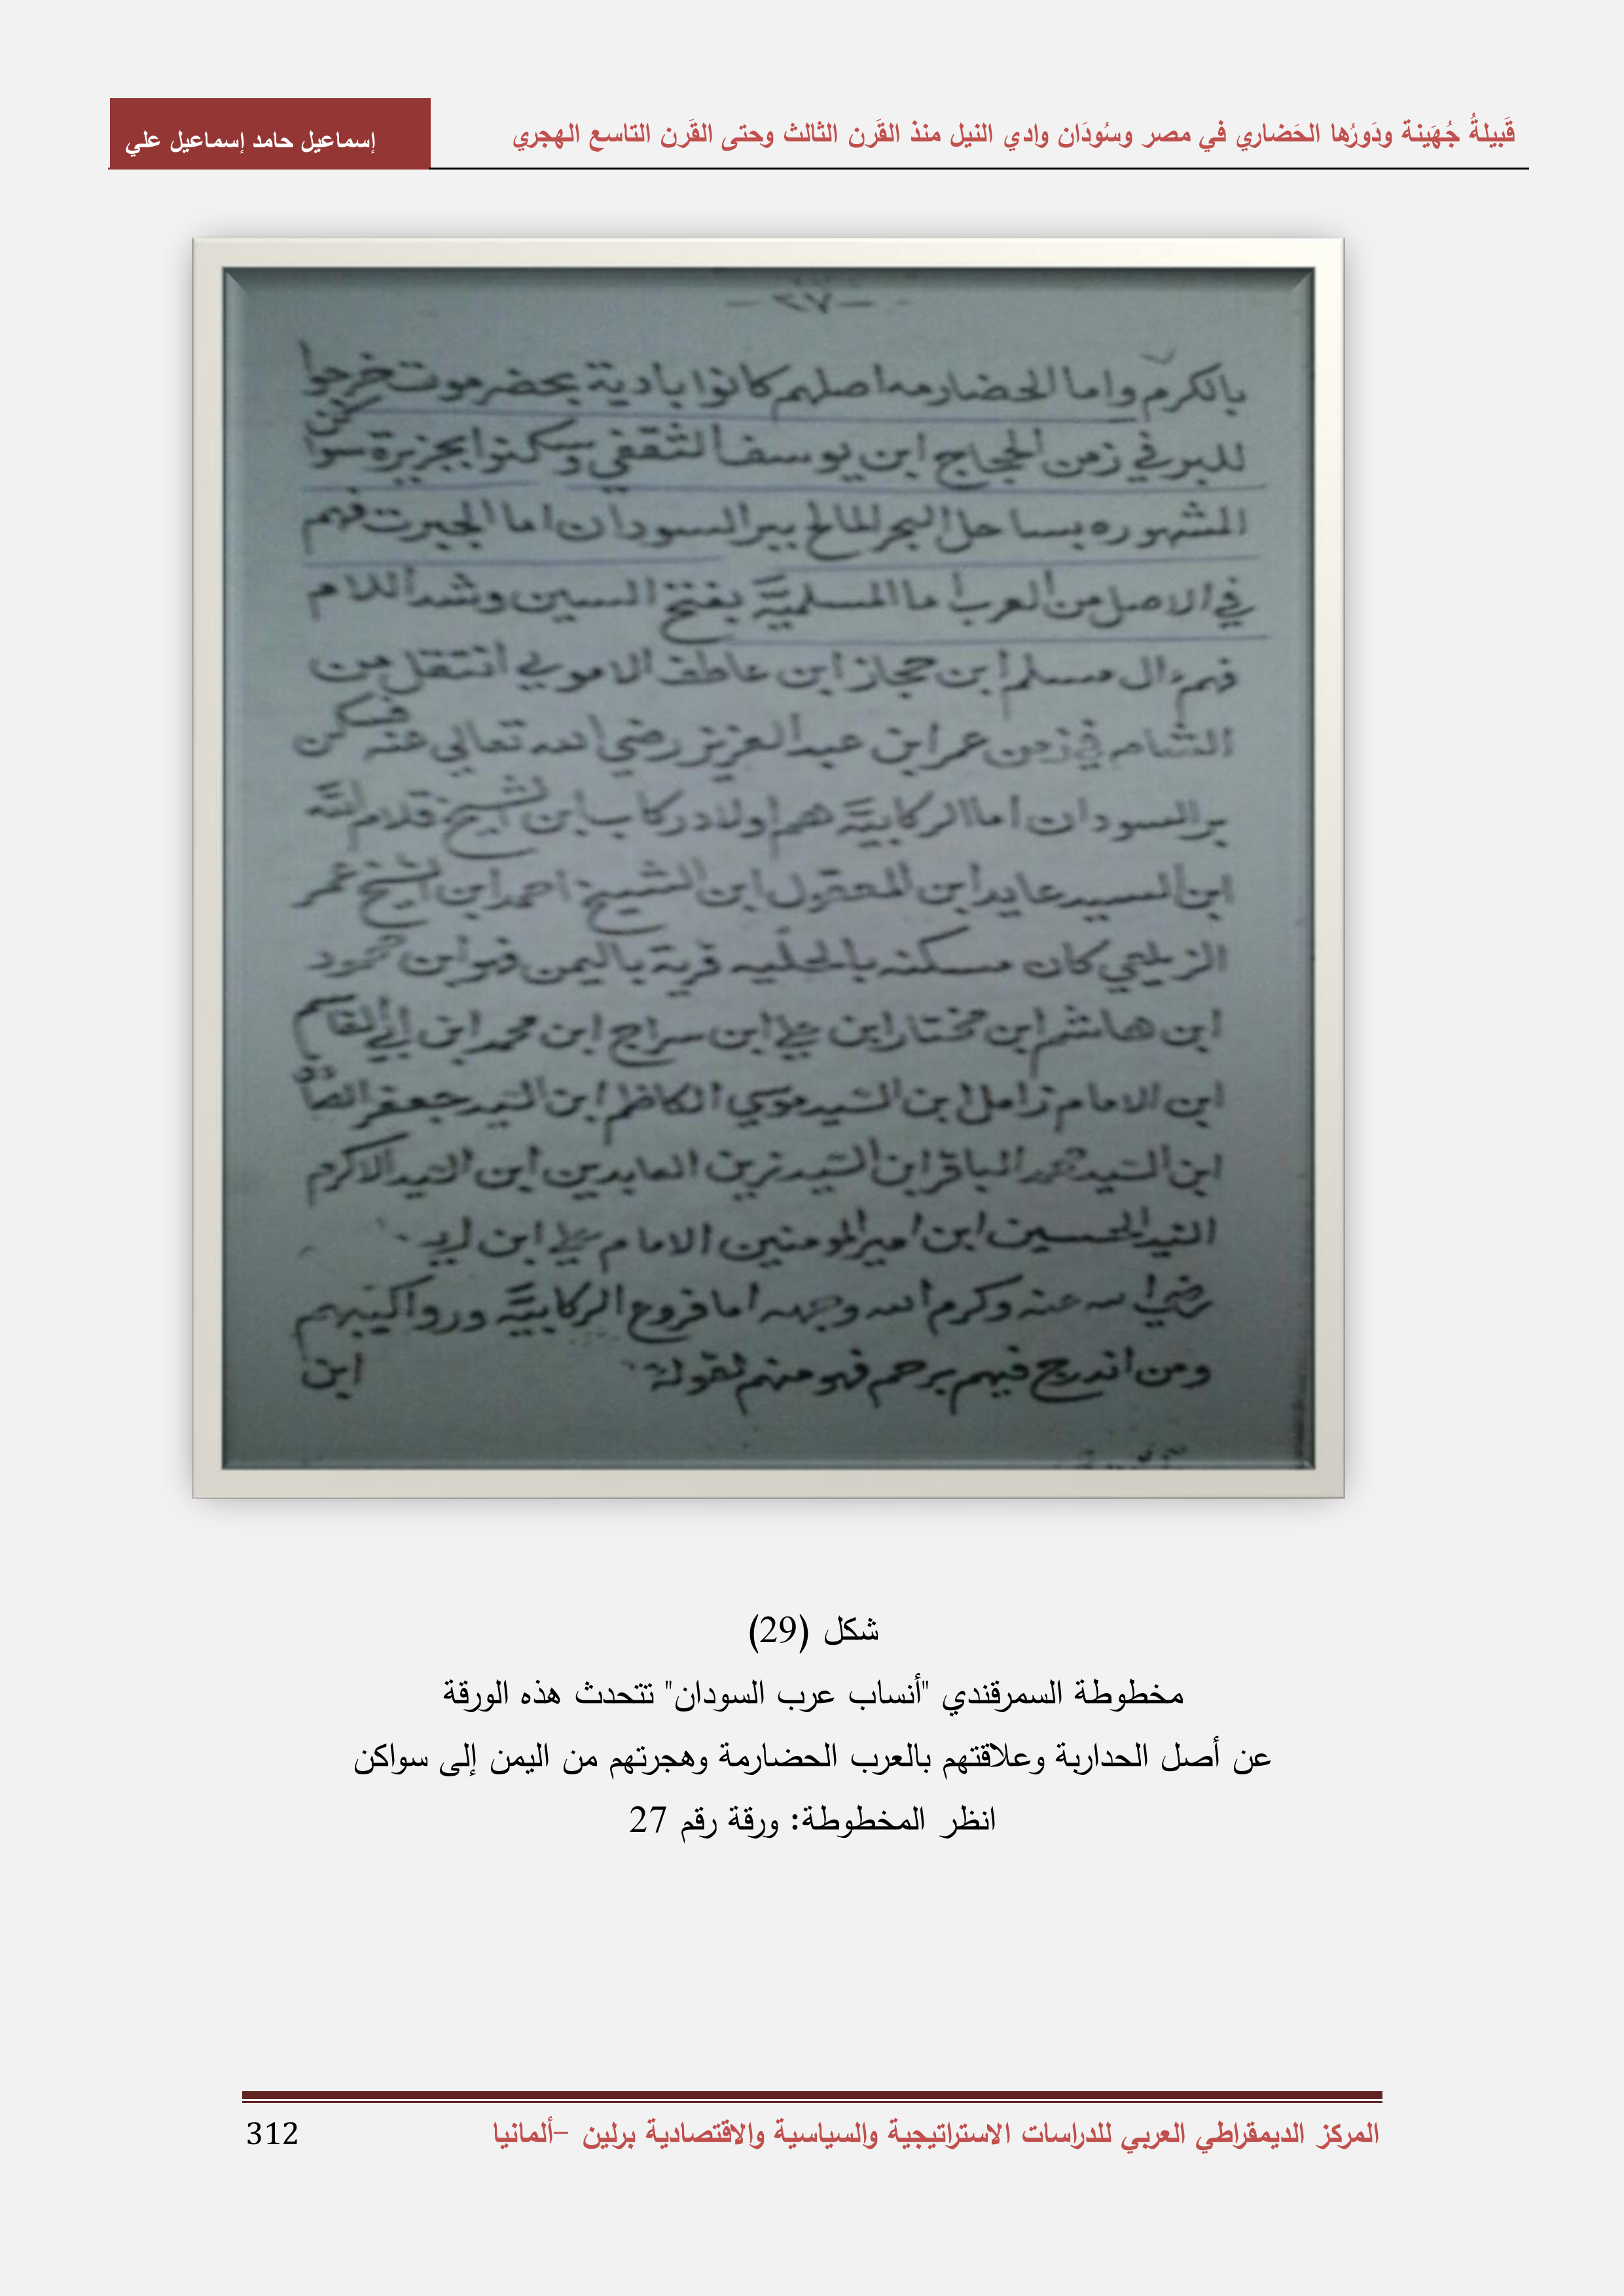 قَبيلةُ جُهَينة ودَورُها الحَضاري في مصر وسُودَان وادي النيل منذ القَرن الثالث وحتى القَرن التاسع الهجري
إسماعيل حامد إسماعيل علي
— ٢٧ —
بالكرم واما الحضارمه اصلهم كانوا بادية بحضرموت خرجوا
للبر في زمن الحجاج ابن يوسف الثقفي وسكنوا بجزيرة سواكن
المشهوره بساحل البحر المالح ببر السودان اما الجبرت فهم
في الاصل من العرب اما المسلميَّة بفتح السين وشد اللام
فهم ال مسلم ابن حجاز ابن عاطف الاموي انتقل من
الشام في زمن عمر ابن عبد العزيز رضي الله تعالي عنه فسكن
بر السودان اما الركابيَّة هم اولاد ركاب ابن الشيخ غلام الله
ابن السيد عايد ابن المقبول ابن الشيخ احمد ابن الشيخ عمر
الزيلعي كان مسكنه بالحليه قرية باليمن فهو ابن محمود
ابن هاشم ابن مختار ابن علي ابن سراج ابن محمد ابن ابي القاسم
ابن الامام زامل بن السيد موسي الكاظم ابن السيد جعفر الصادق
ابن السيد محمد الباقر ابن السيد زين العابدين ابن السيد الاكرم
السيد الحسين ابن امير المومنين الامام علي ابن
رضي الله عنه وكرم الله وجهه اما فروع الركابيَّة ورواكيبهم
ومن اندرج فيهم برحم فهو منهم لقوله
ابن
شكل (29)
مخطوطة السمرقندي "أنساب عرب السودان" تتحدث هذه الورقة
عن أصل الحداربة وعلاقتهم بالعرب الحضارمة وهجرتهم من اليمن إلى سواكن
انظر المخطوطة: ورقة رقم 27
المركز الديمقراطي العربي للدراسات الاستراتيجية والسياسية والاقتصادية برلين –ألمانيا
312